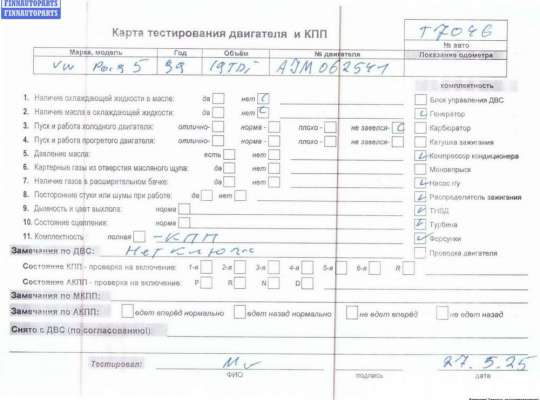 FINNAUTOPARTS
FINNAUTOPARTS
Карта тестирования двигателя и КПП
Т7046
№ авто
Марка, модель Год Объём № двигателя Показание одометра
VW 99 1.9TDi AJM 062541
комплектность
1. Наличие охлаждающей жидкости в масле: да нет
2. Наличие масла в охлаждающей жидкости: да нет
3. Пуск и работа холодного двигателя: отлично- норма - плохо - не завелся-
4. Пуск и работа прогретого двигателя: отлично- норма - плохо - не завелся-
5. Давление масла: есть нет
6. Картерные газы из отверстия масляного щупа: да нет
7. Наличие газов в расширительном бачке: да нет
8. Посторонние стуки или шумы при работе: да нет
9. Дымность и цвет выхлопа: норма
10. Состояние сцепления: норма
11. Комплектность полная - КПП
Блок управления ДВС
Генератор
Карбюратор
Катушка зажигания
Компрессор кондиционера
Моновпрыск
Насос г/у
Распределитель зажигания
ТНВД
Турбина
Форсунки
Проверка двигателя
Замечания по ДВС: Нет ключа
Состояние КПП - проверка на включение: 1-я 2-я 3-я 4-я 5-я 6-я R
Состояние АКПП - проверка на включение: P R N D
Замечания по МКПП:
Замечания по АКПП: едет вперёд нормально едет назад нормально не едет вперёд не едет назад
Снято с ДВС (по согласованию):
Тестировал: 27.5.25
ФИО подпись дата